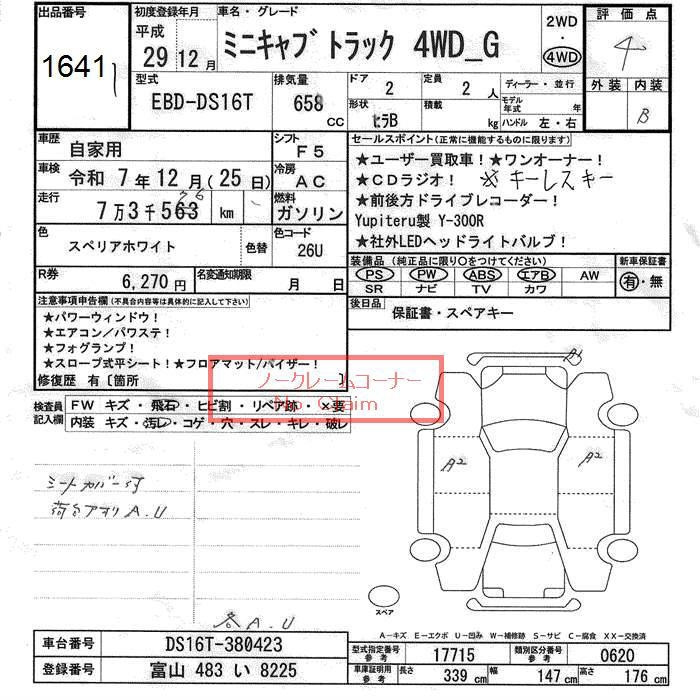 出品番号 1641
初度登録年月 平成 29 12 月
車名・グレード ミニキャブ トラック 4WD_G
2WD ・ 4WD
評価点 4
外装 内装 B
型式 EBD-DS16T
排気量 658 CC
ドア 2
定員 2 人
形状 ヒラB
積載 kg
ディーラー・並行
モデル年式 年
ハンドル 左・右
車歴 自家用
シフト F5
車検 令和 7 年 12 月 (25 日)
冷房 AC
走行 7 万 3 千 563 km
燃料 ガソリン
色 スペリアホワイト 色替
色コード 26U
R券 6,270 円
名変通知期限 月 日
セールスポイント(正常に機能するものに限ります)
★ユーザー買取車!★ワンオーナー!
★CDラジオ! ※キーレスキー
★前後方ドライブレコーダー!
Yupiteru製 Y-300R
★社外LEDヘッドライトバルブ!
装備品 (純正品に限り〇をつけてください)
PS PW ABS エアB AW
SR ナビ TV カワ
新車保証書 有・無
後日品 保証書・スペアキー
注意事項申告欄(不具合内容等は具体的に記入して下さい)
★パワーウィンドウ!
★エアコン/パワステ!
★フォグランプ!
★スロープ式平シート!★フロアマット/バイザー!
修復歴 有〔箇所 〕
ノークレームコーナー
No Claim
検査員記入欄
FW キズ・飛石・ヒビ割・リペア跡・×要
内装 キズ・汚レ・コゲ・穴・スレ・キレ・破レ
シートカバー付
荷台アオリ A.U
各A.U
A1
A2
A2
スペア
A-キズ E-エクボ U-凹み W-補修跡 S-サビ C-腐食 XX-交換済
車台番号 DS16T-380423
登録番号 富山 483 い 8225
型式指定番号 参考 17715
類別区分番号 参考 0620
車庫証明用 参考 長さ 339 cm 幅 147 cm 高さ 176 cm